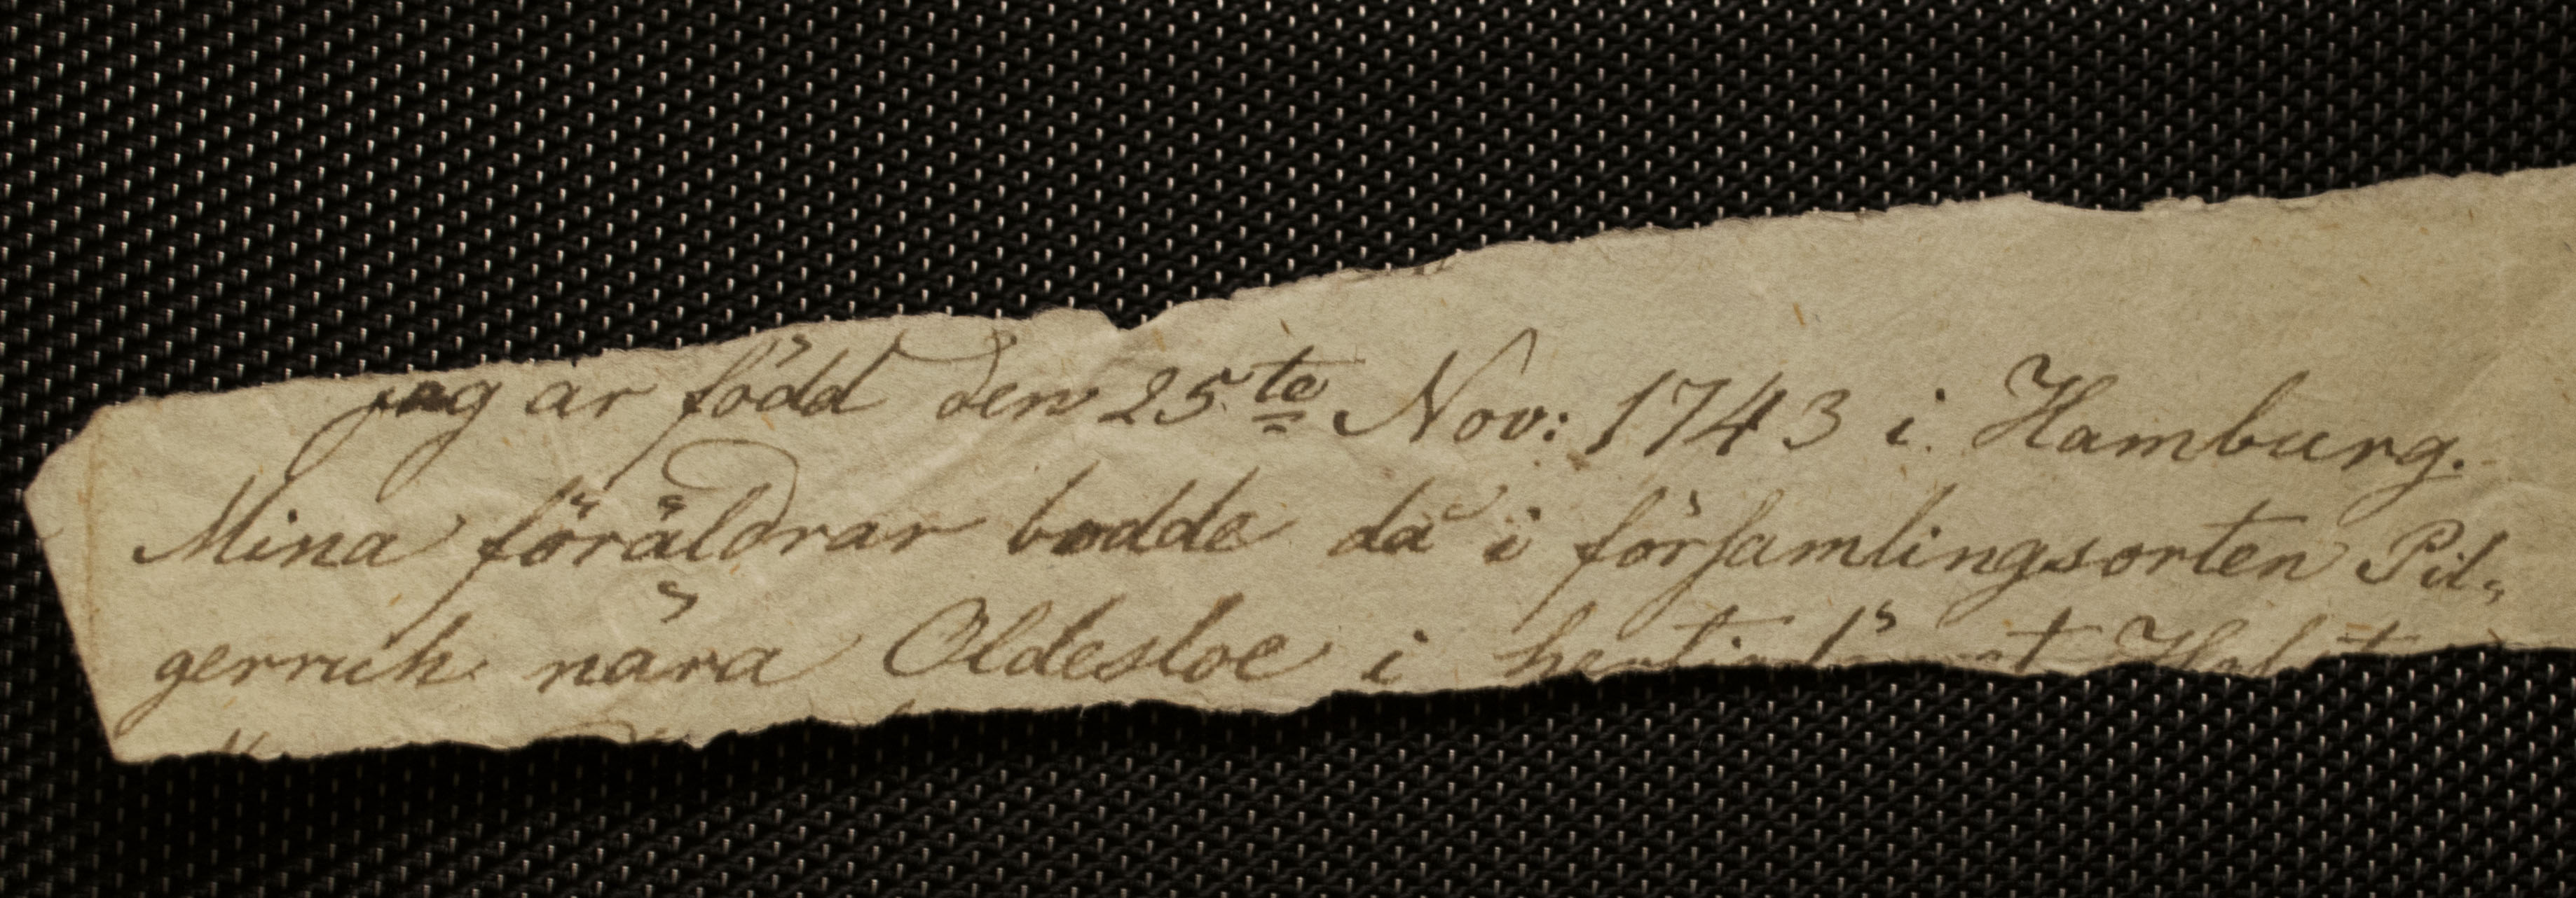 jag är född den 25te Nov: 1743 i Hamburg.
Mina föräldrar bodde då i församlingsorten Pil„
gerruh nära Oldesloe i hertigdömet Holst